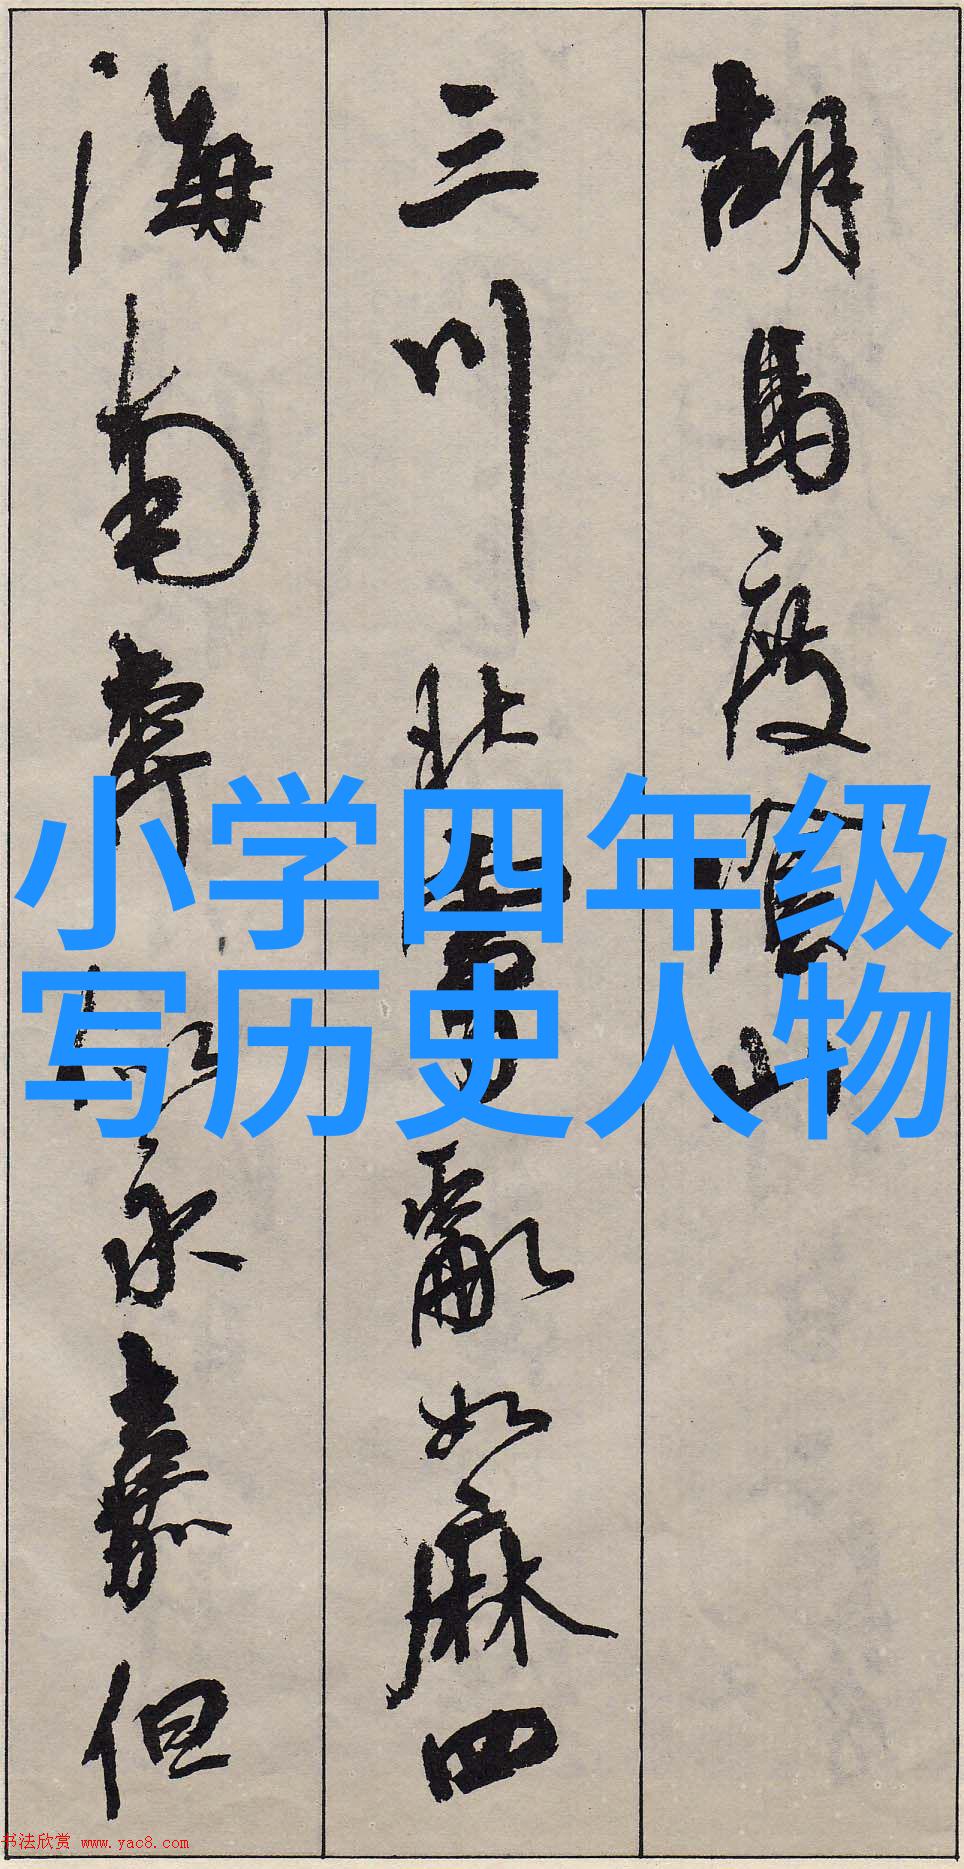 胡马度阴山
三川北虏乱如麻四
海南奔似永嘉但
小学四年级
写历史人物
书法欣赏 www.yac8.com